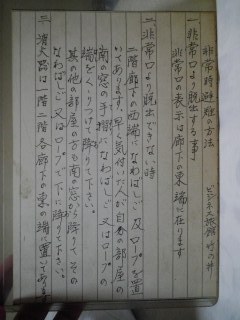 非常時避難の方法
ビジネス旅館 竹の井
一 非常口より脱出する事
非常口の表示は廊下の東端に在ります
二 非常口より脱出できない時
二階廊下の西端になわばしご及ロープを置
いてあります。早く気付いた人が自分の部屋の
南の窓の手摺になわばしご又はロープの
端をくくりつけて降りて下さい。
其の他の部屋の方も南の窓から降りてその
なわばしご又はロープで下に降りて下さい。
三 消火器は一階二階各廊下の東の端に置いてあります